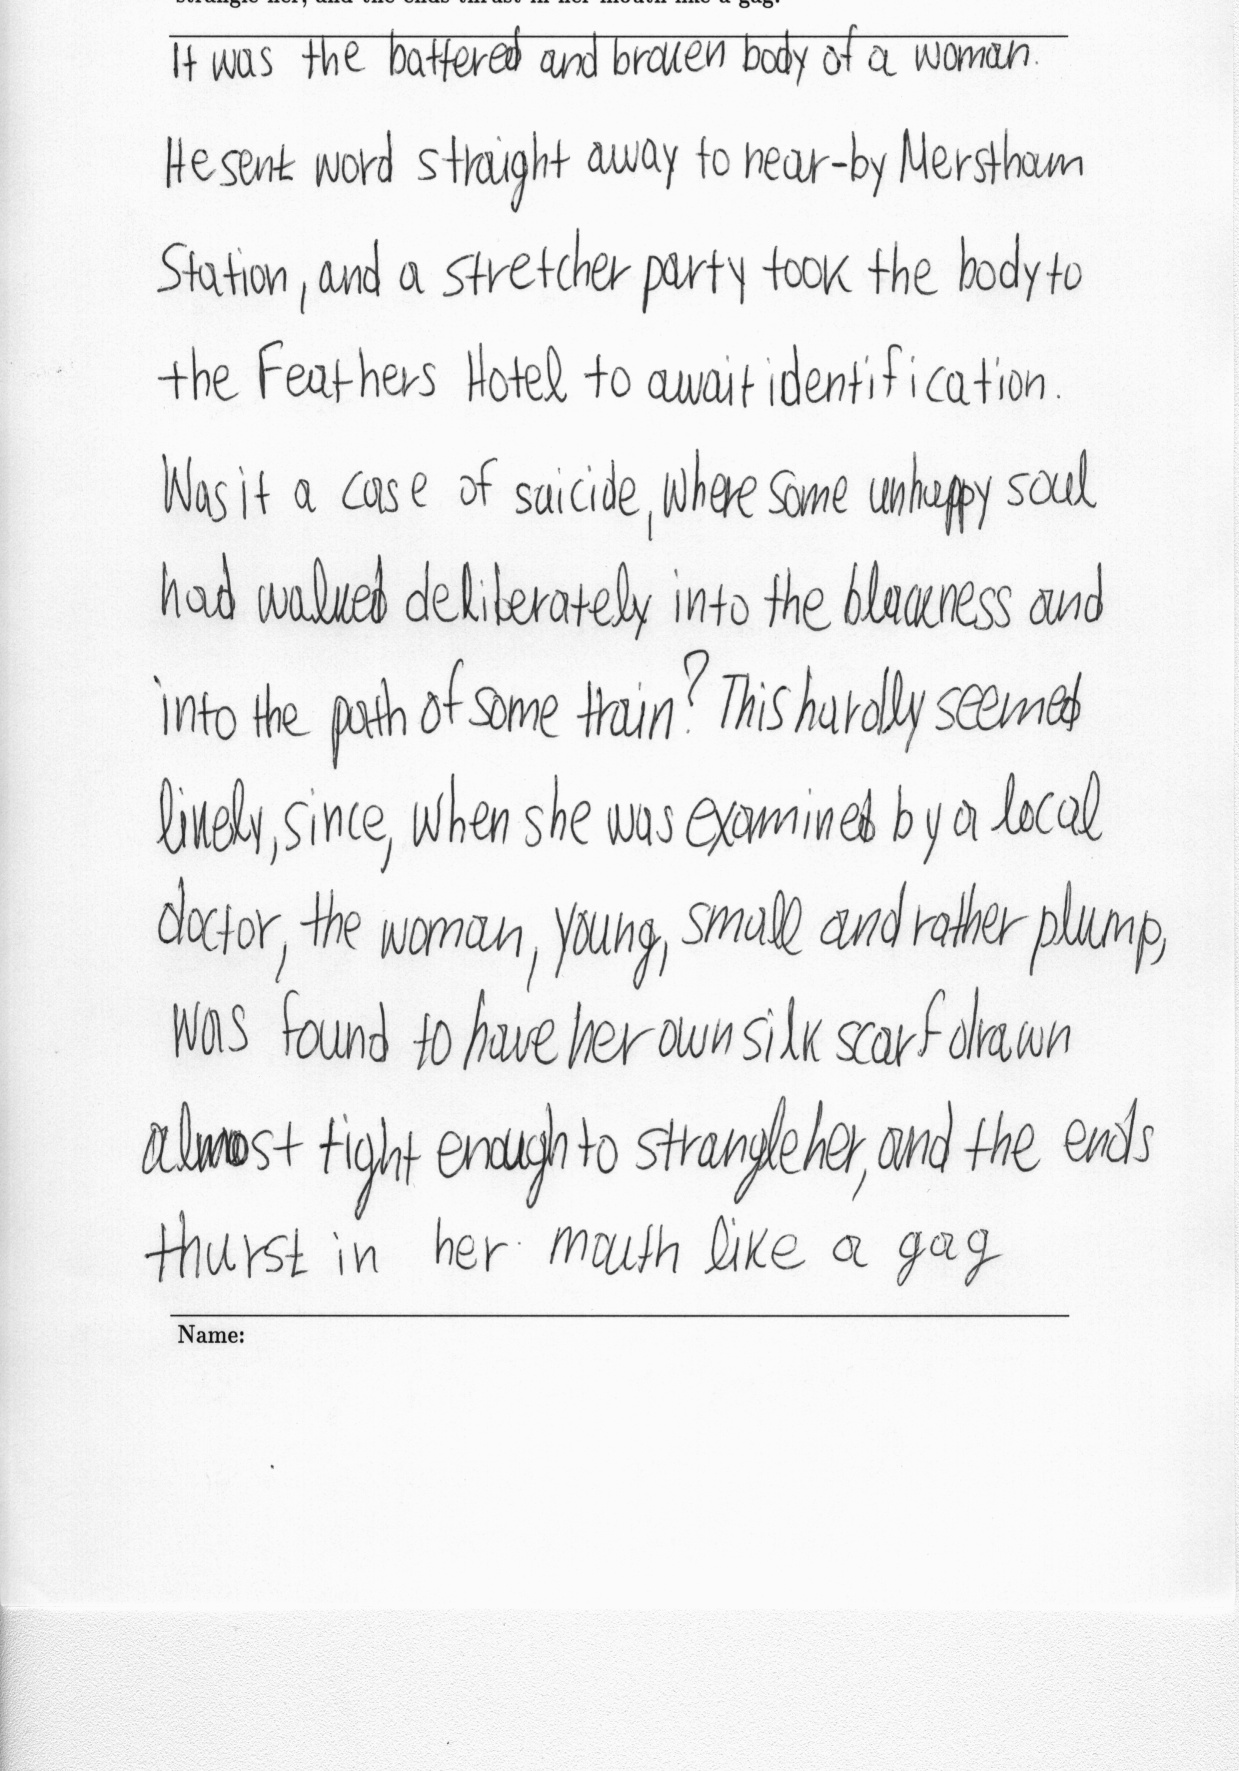 strangle her, and the ends thrust in her mouth like a gag.
It was the battered and broken body of a woman.
He sent word straight away to near-by Merstham
Station, and a stretcher party took the body to
the Feathers Hotel to await identification.
Was it a case of suicide, where some unhappy soul
had walked deliberately into the blackness and
into the path of some train? This hardly seemed
likely, since, when she was examined by a local
doctor, the woman, young, small and rather plump,
was found to have her own silk scarf drawn
almost tight enough to strangle her, and the ends
thurst in her mouth like a gag
Name: